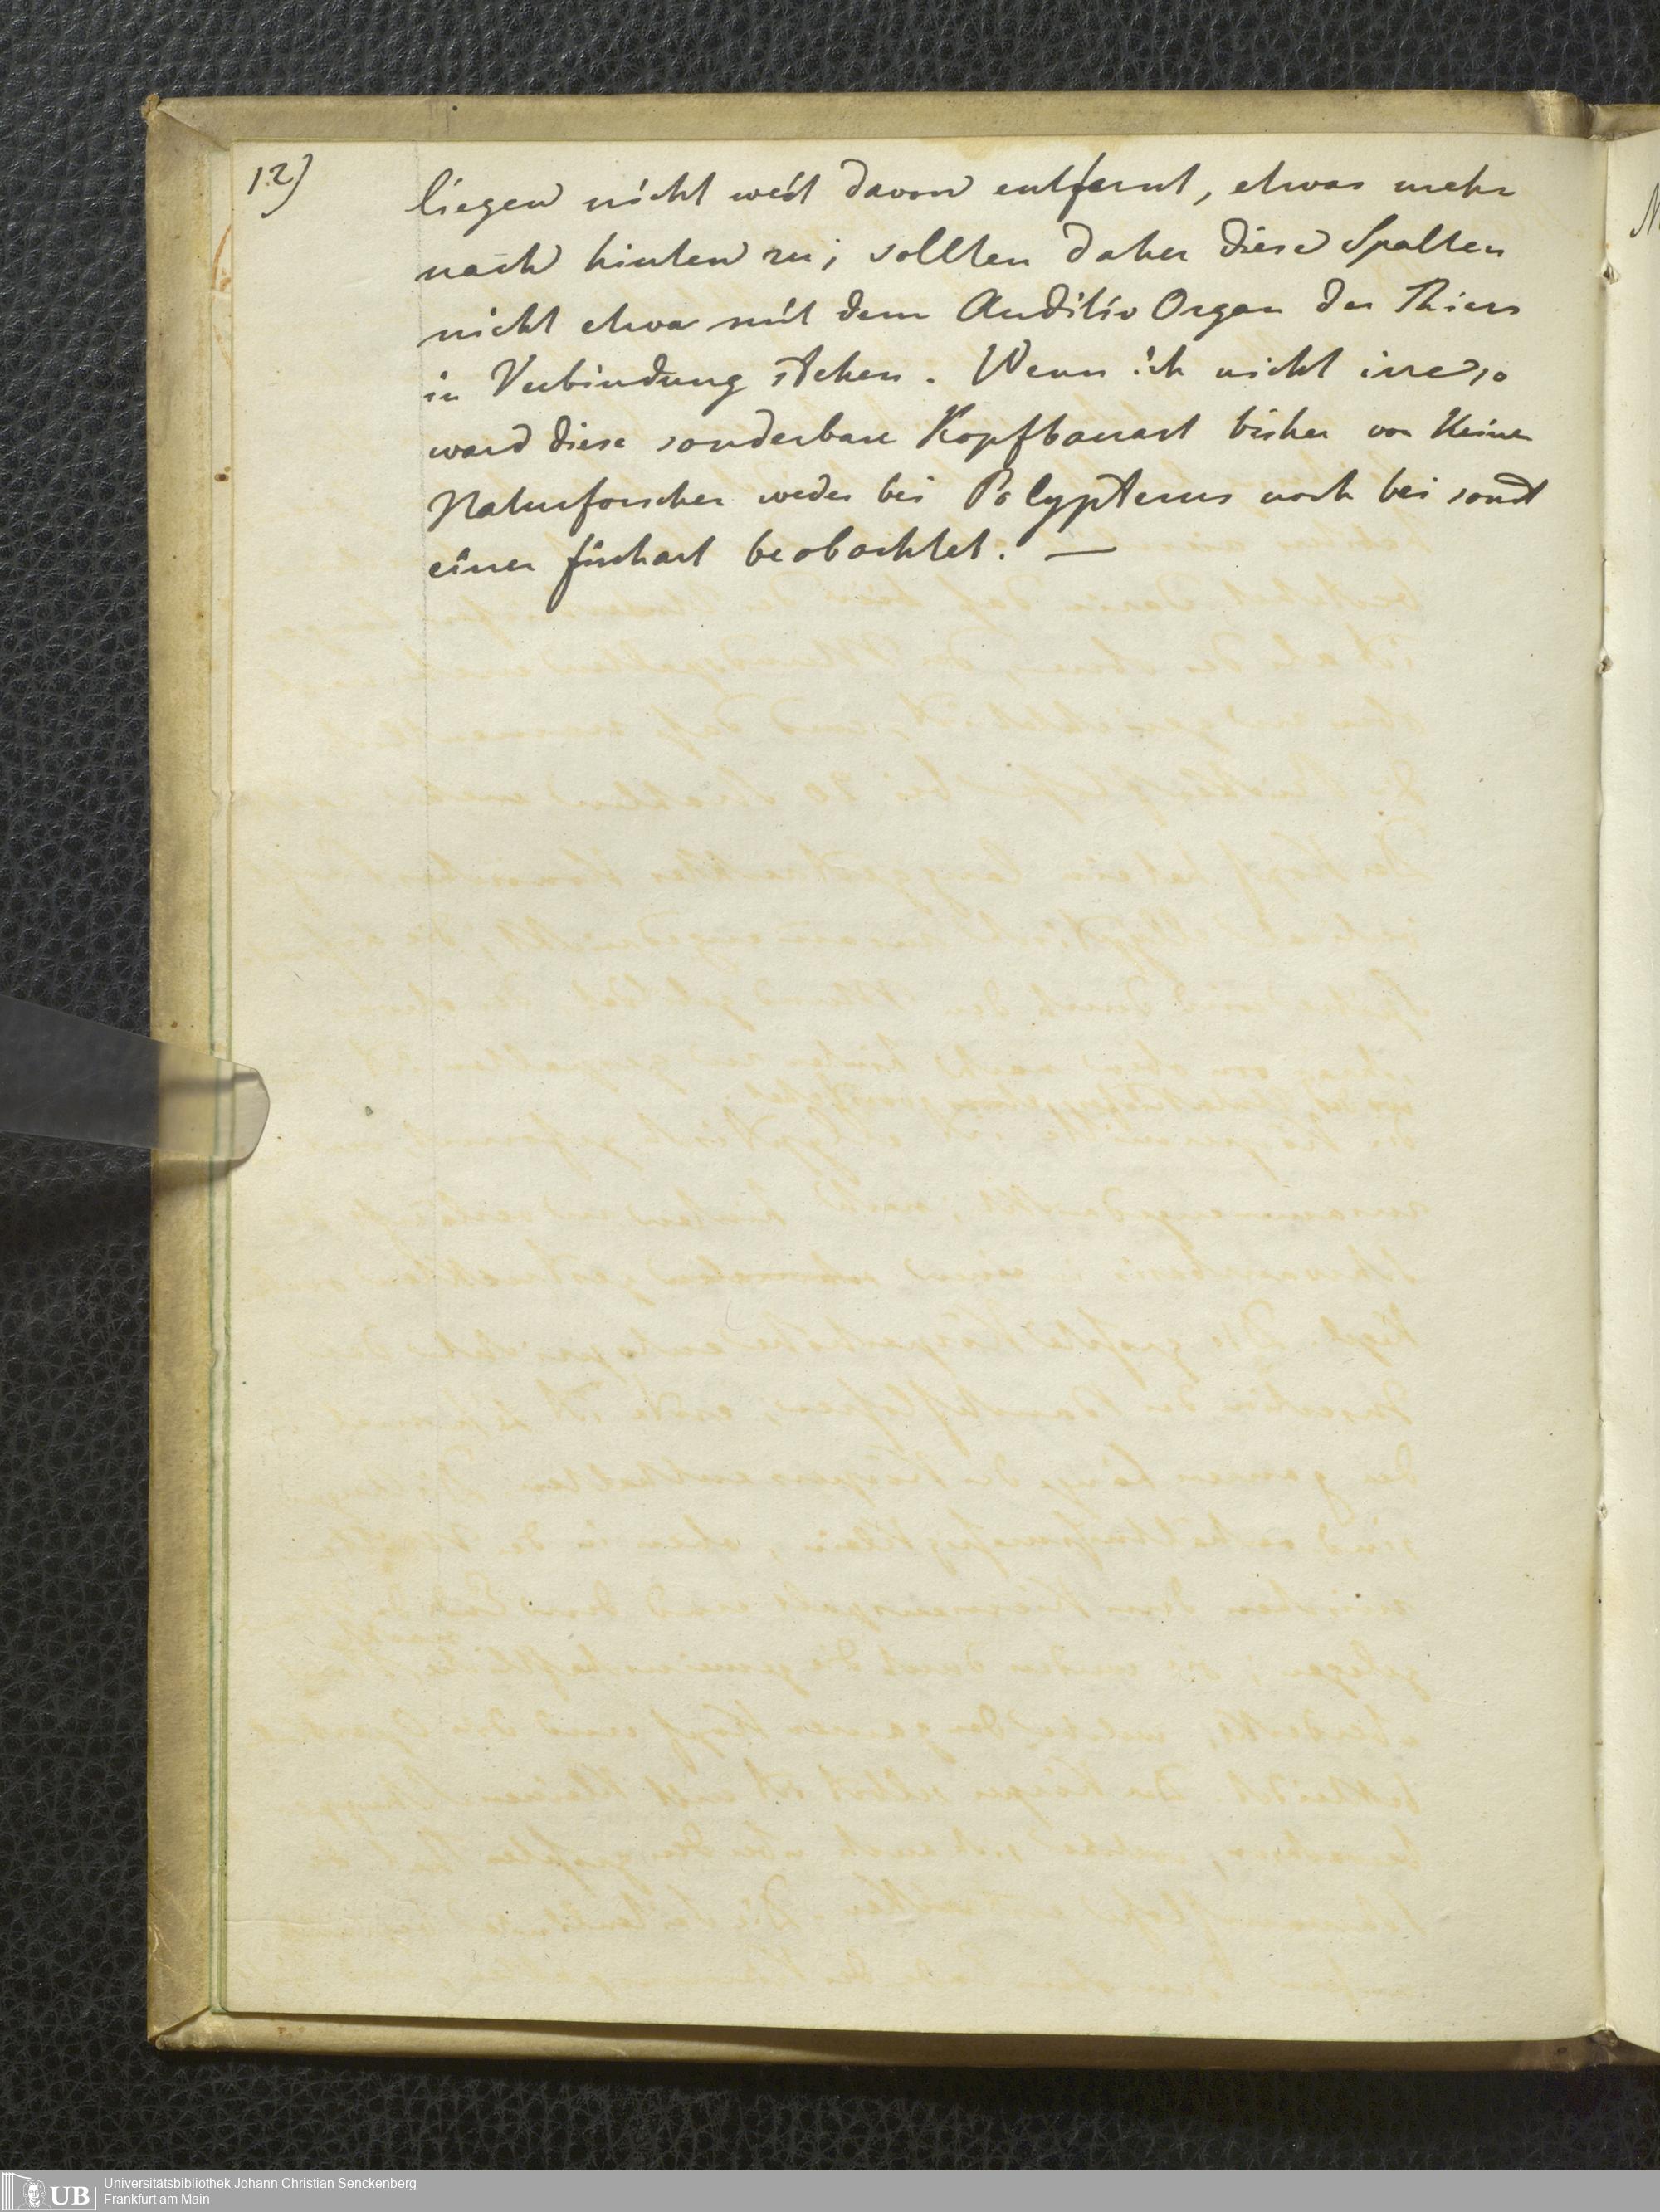 12)
liegen nicht weit davon entfernt, etwas mehr
nach hinten zu; sollten daher diese Spalten
nicht etwa mit dem Auditiv Organ des Thiers
in Verbindung stehen. Wenn ich nicht irre so
ward diese sonderbare Kopfbauart bisher von Keinen
Naturforscher weder bei Polypterus noch bei sonst
einer fischart beobachtet. —
UB Universitätsbibliothek Johann Christian Senckenberg
Frankfurt am Main